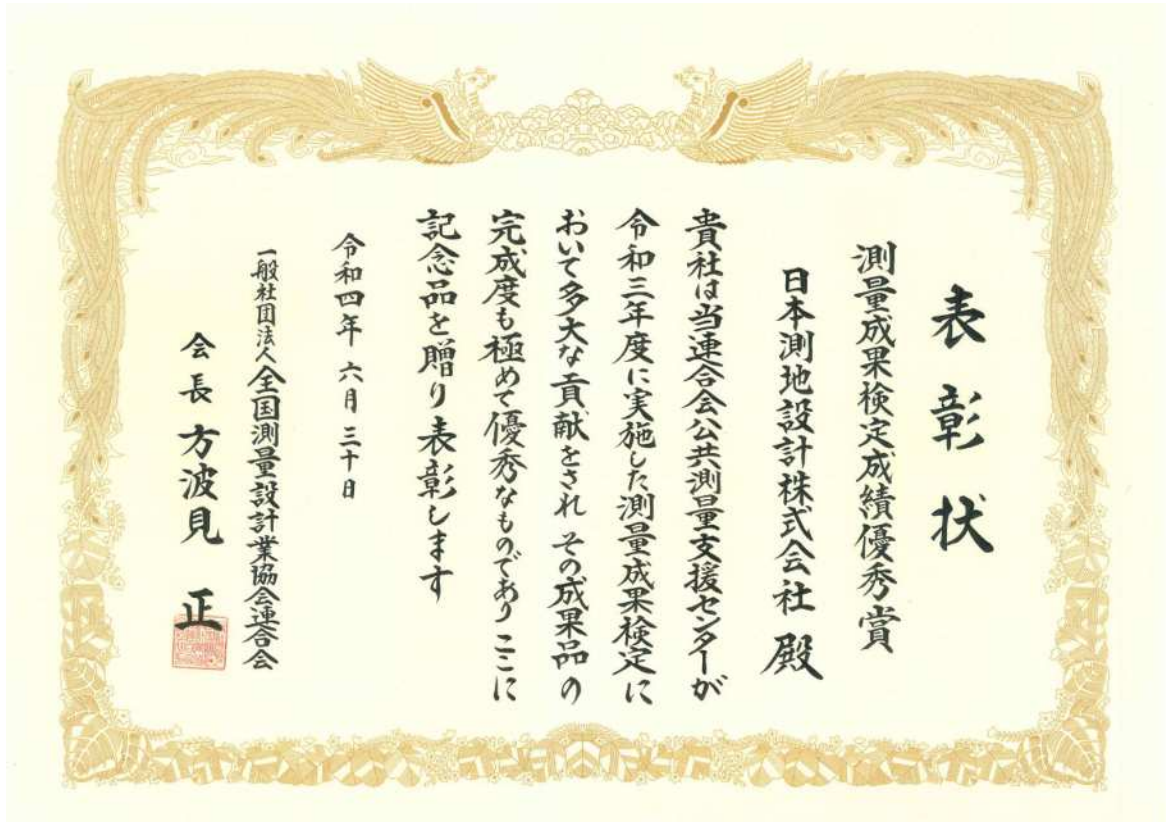 表彰状
測量成果検定成績優秀賞
日本測地設計株式会社 殿
貴社は当連合会公共測量支援センターが
令和三年度に実施した測量成果検定に
おいて多大な貢献をされ その成果品の
完成度も極めて優秀なものであり ここに
記念品を贈り表彰します
令和四年 六月 三十日
一般社団法人全国測量設計業協会連合会
会長 方波見 正